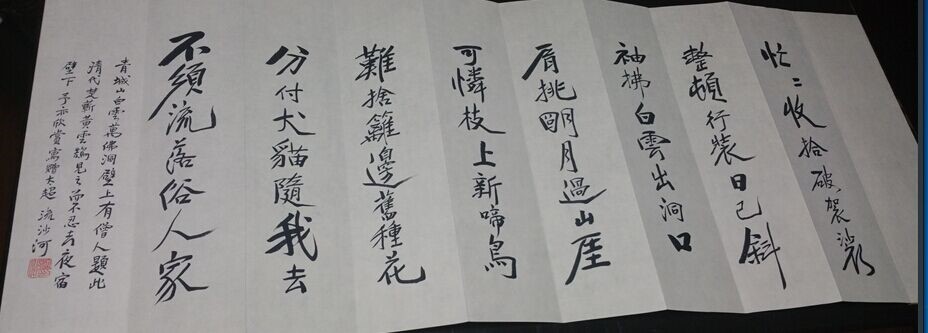 忙〻收拾破袈裟
整頓行裝日已斜
袖拂白雲出洞口
肩挑明月過山崖
可憐枝上新啼鳥
難捨籬邊舊種花
分付犬貓隨我去
不須流落俗人家
青城山白雲萬佛洞壁上有僧人題此
清代楚蘄黃雲鵠見之而不忍去夜宿
壁下 予亦欣賞寫贈太超 流沙河